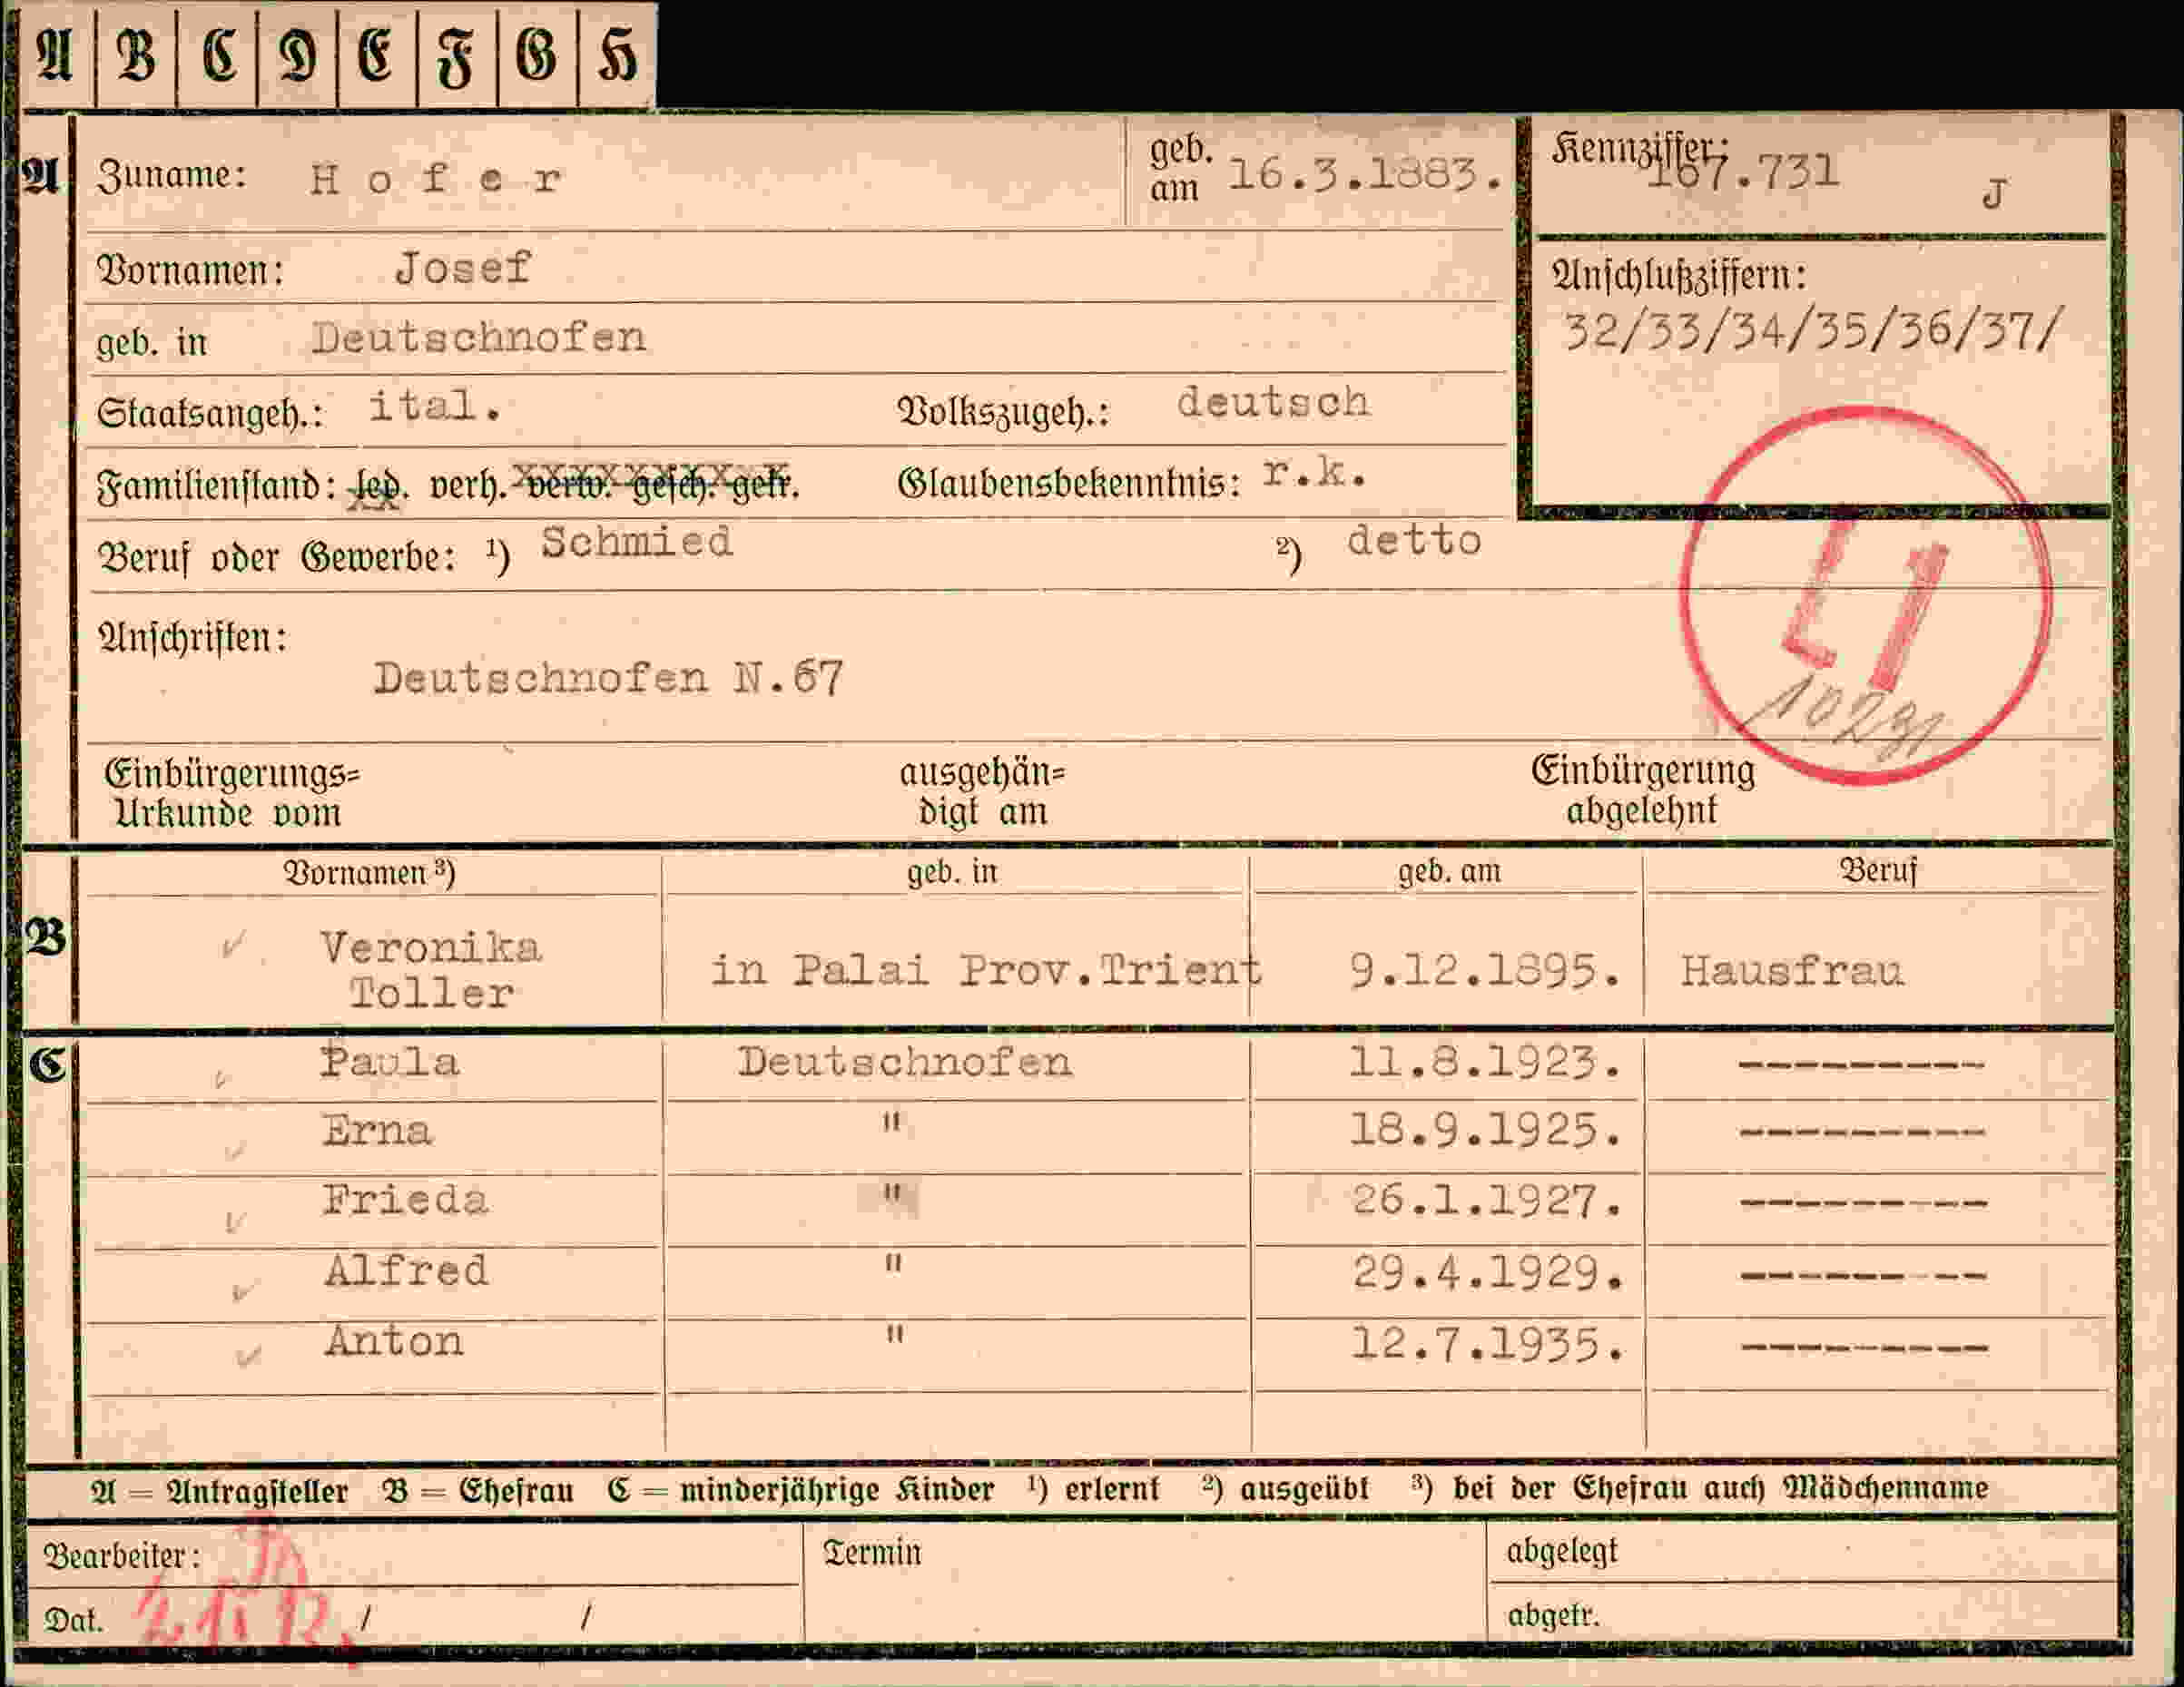 A B C D E F G H
A Zuname: Hofer geb. am 16.3.1883. Kennziffer: 167.731 J
Vornamen: Josef
Anschlußziffern:
geb. in Deutschnofen 32/33/34/35/36/37/
Staatsangeh.: ital. Volkszugeh.: deutsch
Familienstand: led. verh. verw. gesch. getr. Glaubensbekenntnis: r.k.
Beruf oder Gewerbe: ¹) Schmied ²) detto
Anschriften:
Deutschnofen N.67
Einbürgerungs= ausgehän= Einbürgerung
Urkunde vom digt am abgelehnt
Vornamen ³) geb. in geb. am Beruf
B Veronika
Toller in Palai Prov.Trient 9.12.1895. Hausfrau
C Paula Deutschnofen 11.8.1923. ---------
Erna " 18.9.1925. ---------
Frieda " 26.1.1927. ---------
Alfred " 29.4.1929. ---------
Anton " 12.7.1935. ---------
A = Antragsteller B = Ehefrau C = minderjährige Kinder ¹) erlernt ²) ausgeübt ³) bei der Ehefrau auch Mädchenname
Bearbeiter: Termin abgelegt
Dat. / / abgetr.